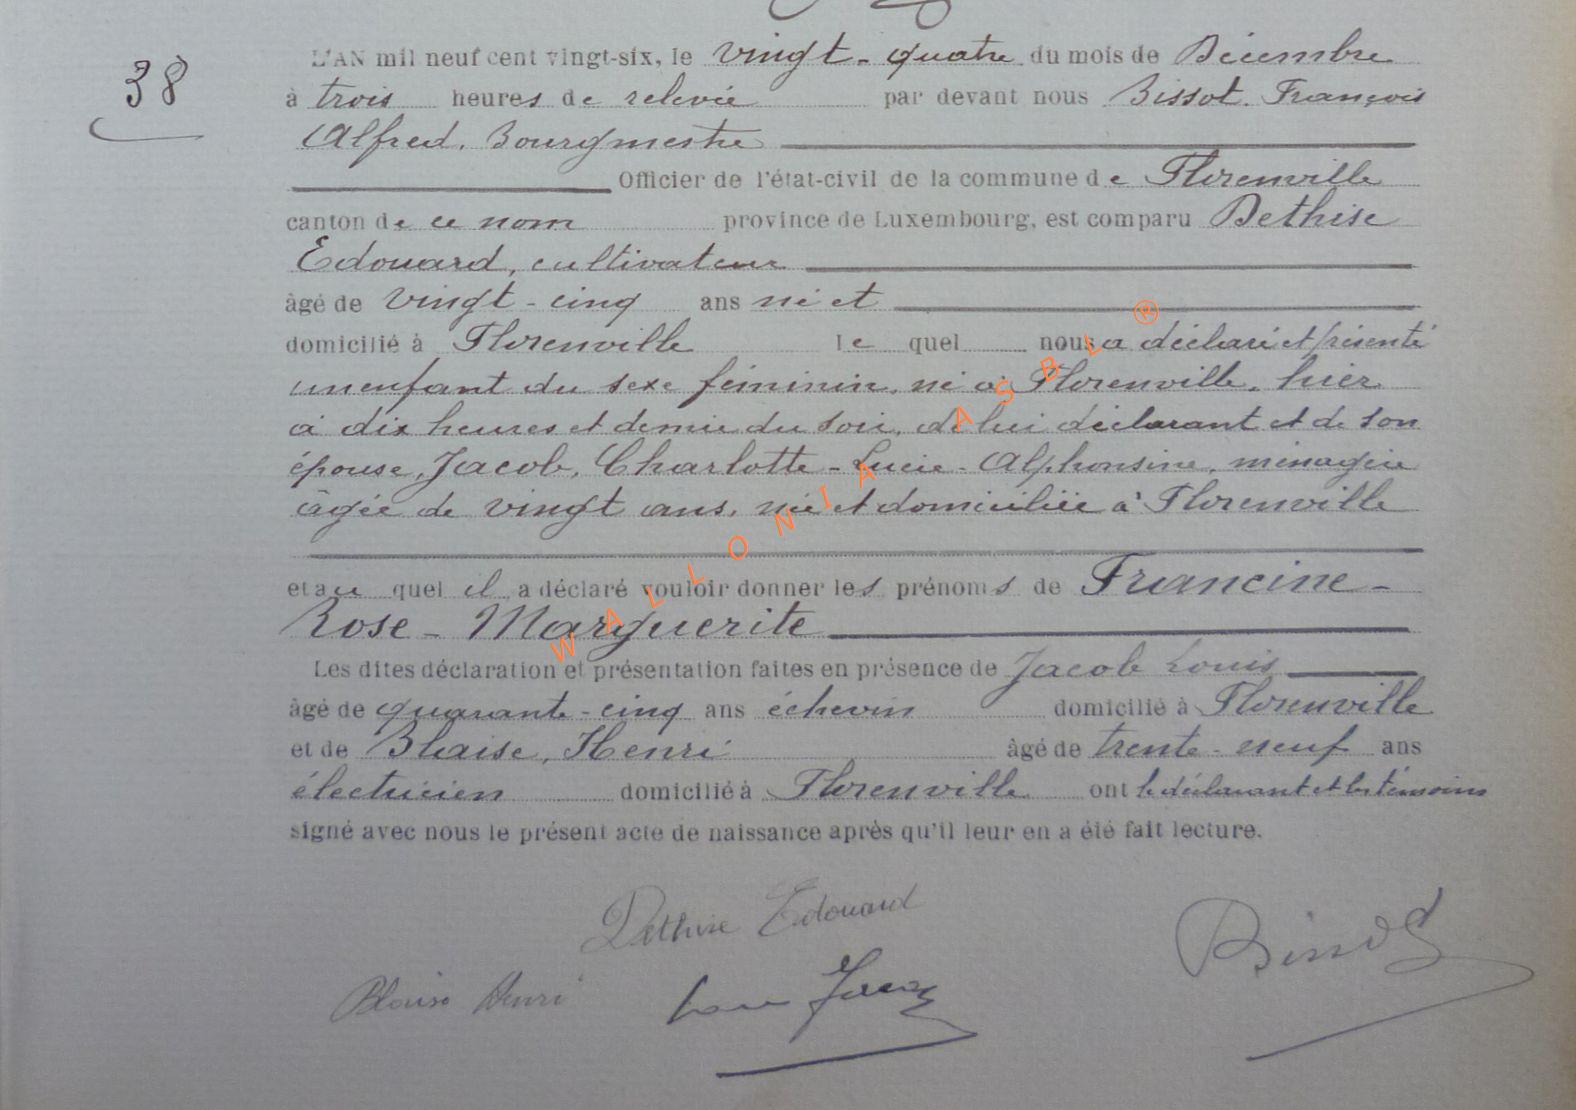 38
L'AN mil neuf cent vingt-six, le vingt-quatre du mois de Décembre
à trois heures de relevée par devant nous Bissot. François
Alfred. Bourgmestre
Officier de l'état-civil de la commune de Florenville
canton de ce nom province de Luxembourg, est comparu Dethise
Edouard, cultivateur
âgé de vingt-cinq ans né et
domicilié à Florenville lequel nous a déclaré et présenté
un enfant du sexe féminin, né à Florenville, hier
à dix heures et demie du soir, de lui déclarant et de son
épouse, Jacob, Charlotte-Lucie-Alphonsine, ménagère
âgée de vingt ans, née et domiciliée à Florenville
et au quel il a déclaré vouloir donner les prénoms de Francine-
Rose-Marguerite
Les dites déclaration et présentation faites en présence de Jacob Louis
âgé de quarante-cinq ans échevin domicilié à Florenville
et de Blaise, Henri âgé de trente-neuf ans
électricien domicilié à Florenville ont le déclarant et les témoins
signé avec nous le présent acte de naissance après qu'il leur en a été fait lecture.
Dethise Edouard
Blaise Henri Louis Jacob
Bissot
WALLONIA ASBL ®